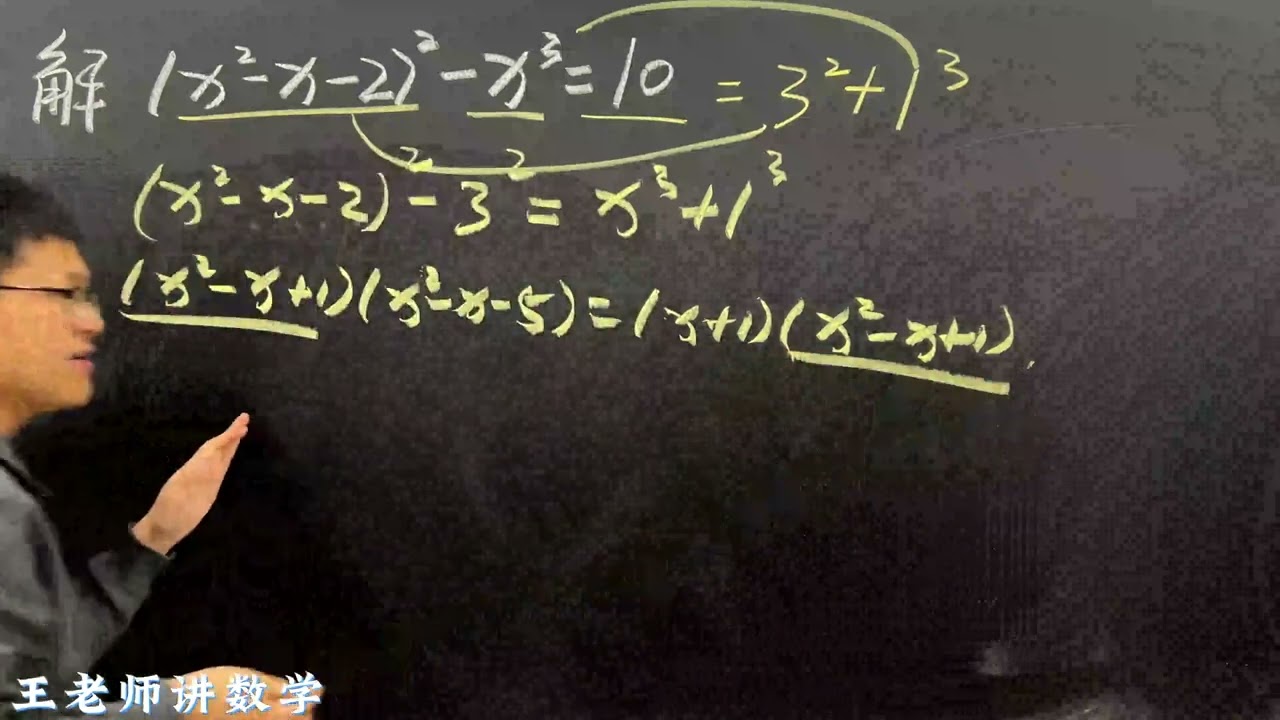 解 (x²-x-2)²-x³=10 = 3²+1³
(x²-x-2)²-3²=x³+1³
(x²-x+1)(x²-x-5)=(x+1)(x²-x+1)
王老师讲数学